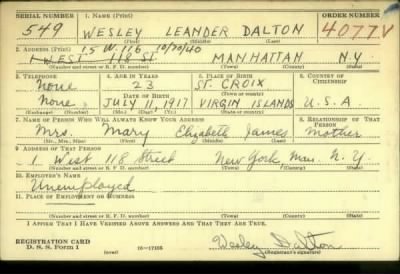 SERIAL NUMBER 1. NAME (Print) ORDER NUMBER
549 WESLEY LEANDER DALTON 4077V
(First) (Middle) (Last)
2. ADDRESS (Print) 15 W. 116 10/20/40
1 WEST 118 ST MANHATTAN N.Y
(Number and street or R. F. D. number) (Town) (County) (State)
3. TELEPHONE 4. AGE IN YEARS 5. PLACE OF BIRTH 6. COUNTRY OF CITIZENSHIP
None 23 ST. CROIX
DATE OF BIRTH (Town or county)
None JULY 11, 1917 VIRGIN ISLANDS U.S.A.
(Exchange) (Number) (Mo.) (Day) (Yr.) (State or country)
7. NAME OF PERSON WHO WILL ALWAYS KNOW YOUR ADDRESS 8. RELATIONSHIP OF THAT PERSON
Mrs. Mary Elizabeth James Mother
(Mr., Mrs., Miss) (First) (Middle) (Last)
9. ADDRESS OF THAT PERSON
1 West 118 Street New York Man. N.Y.
(Number and street or R. F. D. number) (Town) (County) (State)
10. EMPLOYER'S NAME
Unemployed
11. PLACE OF EMPLOYMENT OR BUSINESS
(Number and street or R. F. D. number) (Town) (County) (State)
I AFFIRM THAT I HAVE VERIFIED ABOVE ANSWERS AND THAT THEY ARE TRUE.
REGISTRATION CARD
D. S. S. Form 1 (over) 16—17105 Wesley Dalton
(Registrant's signature)